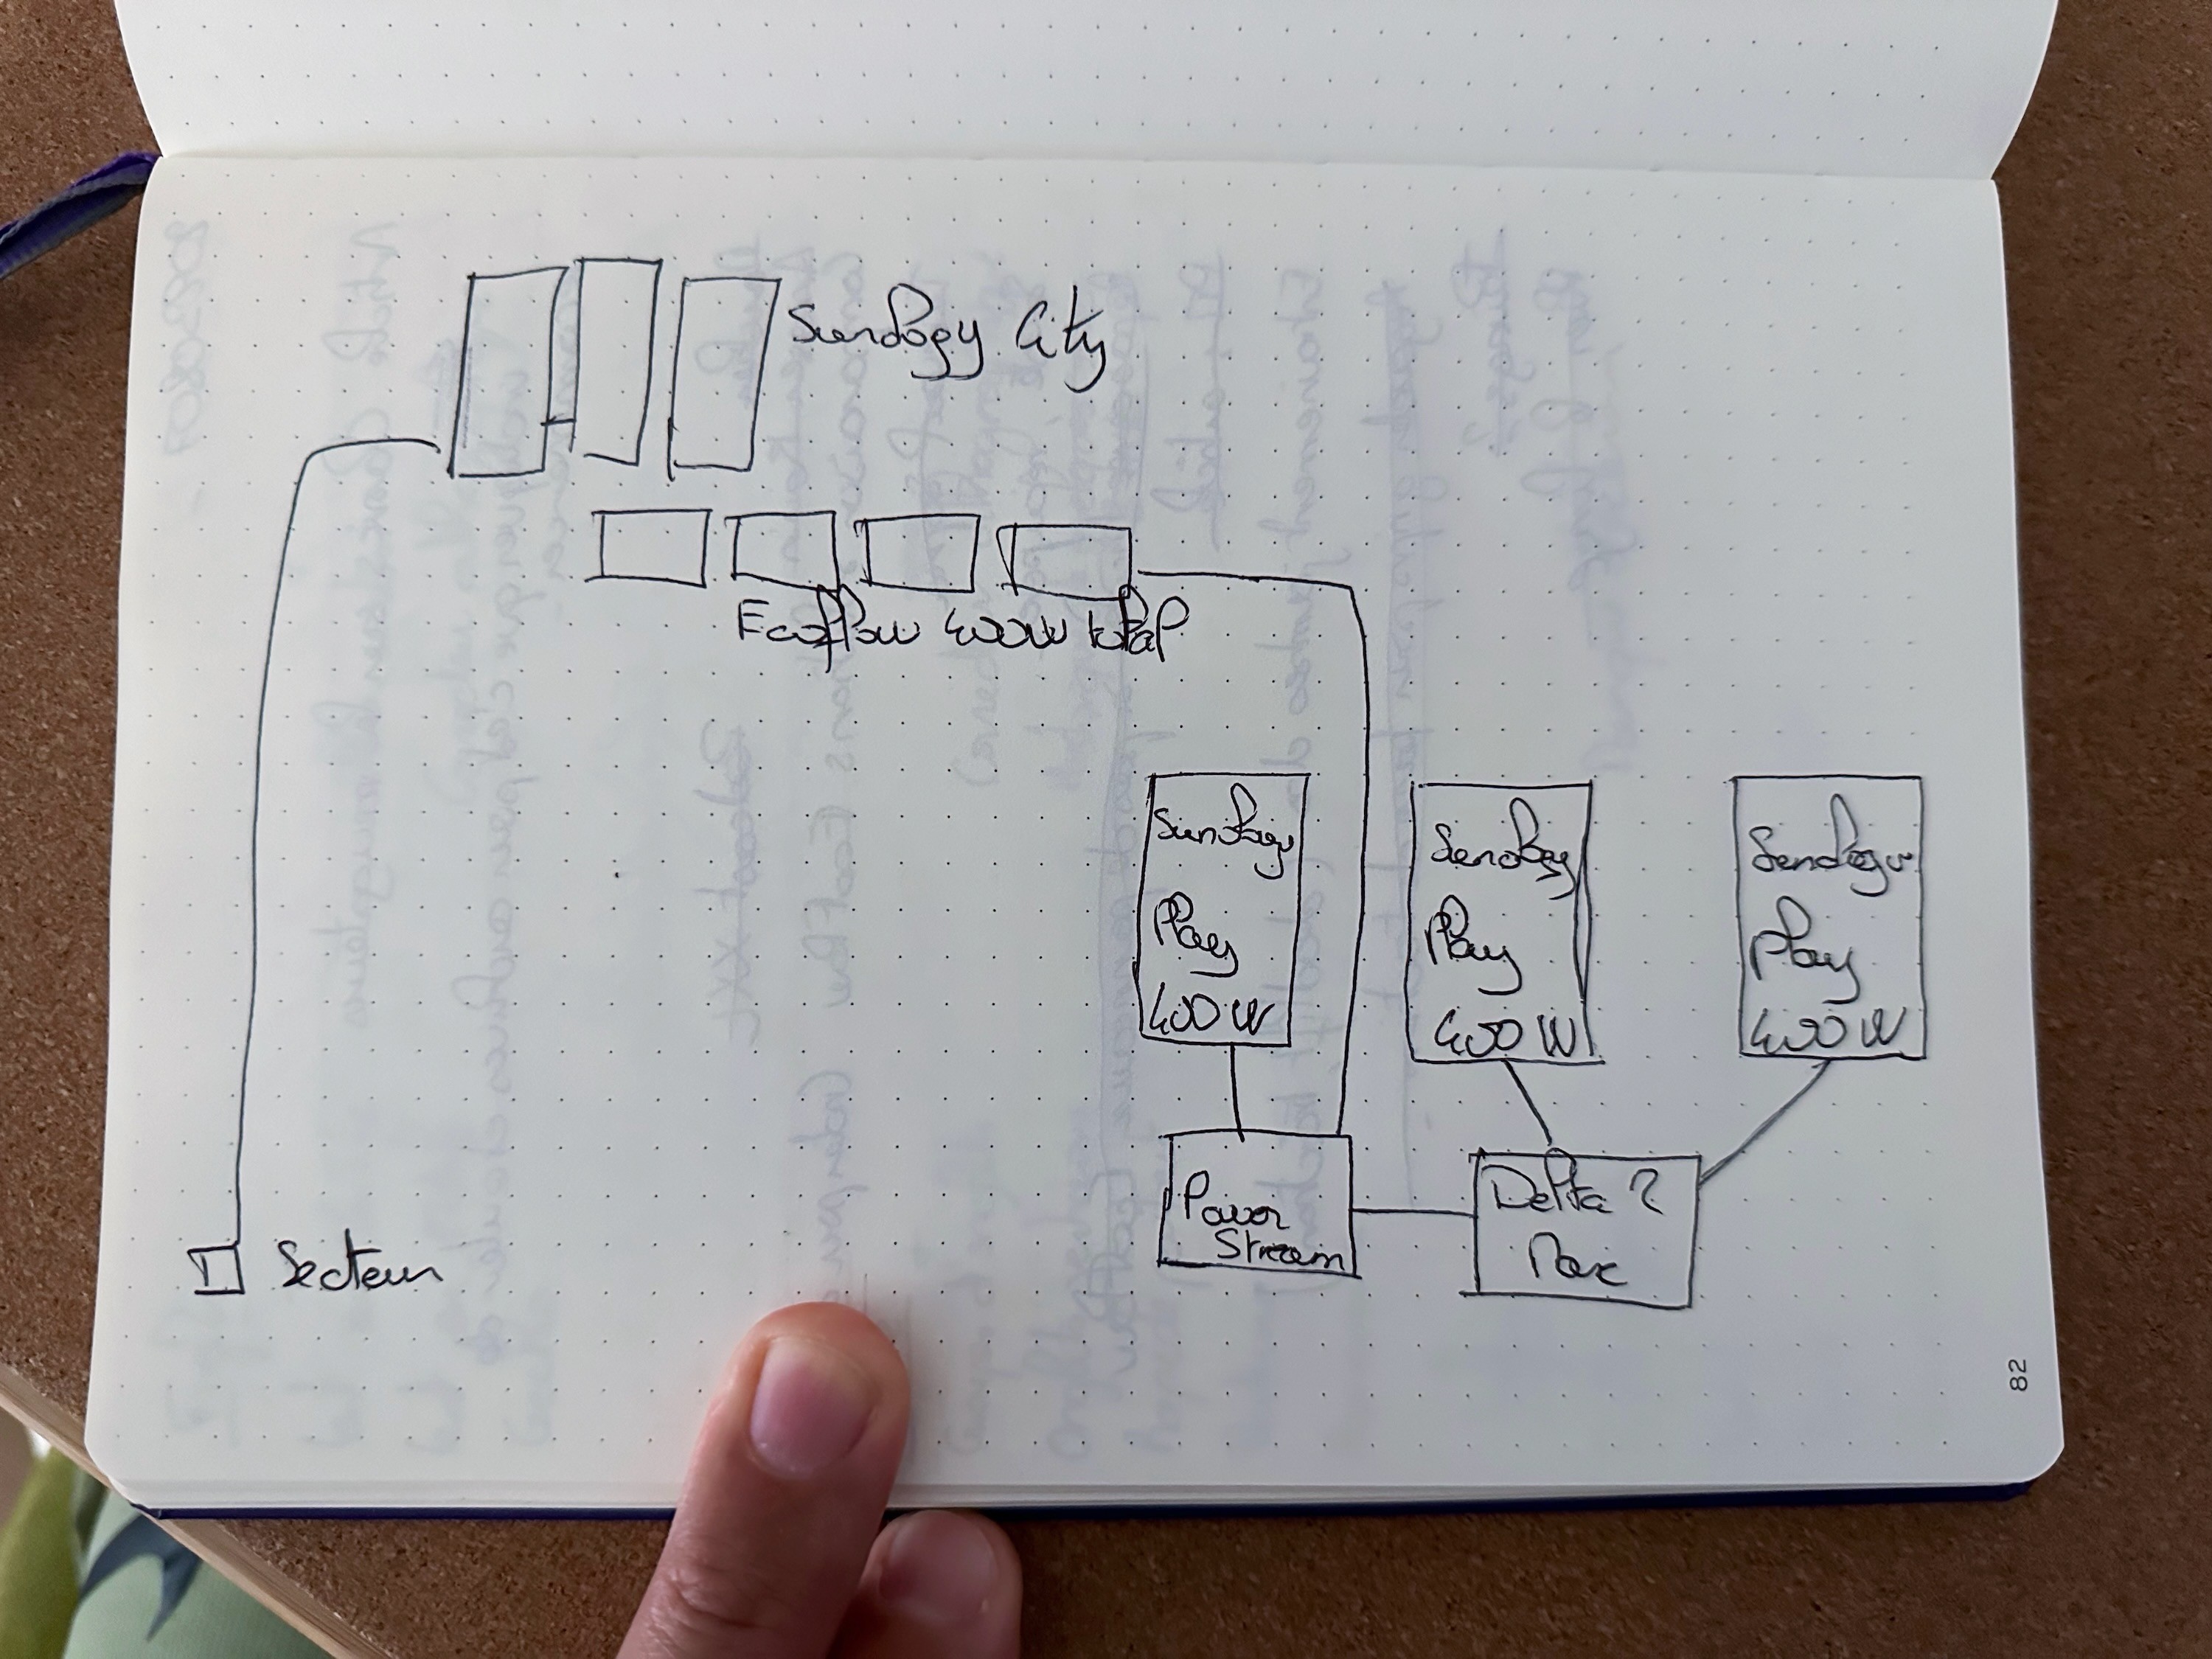 Sunology City
Ecoflow 400W total
Sunology
Play
400 W
Sunology
Play
400 W
Sunology
Play
400 W
Power
Stream
Delta 2
Max
Secteur
82